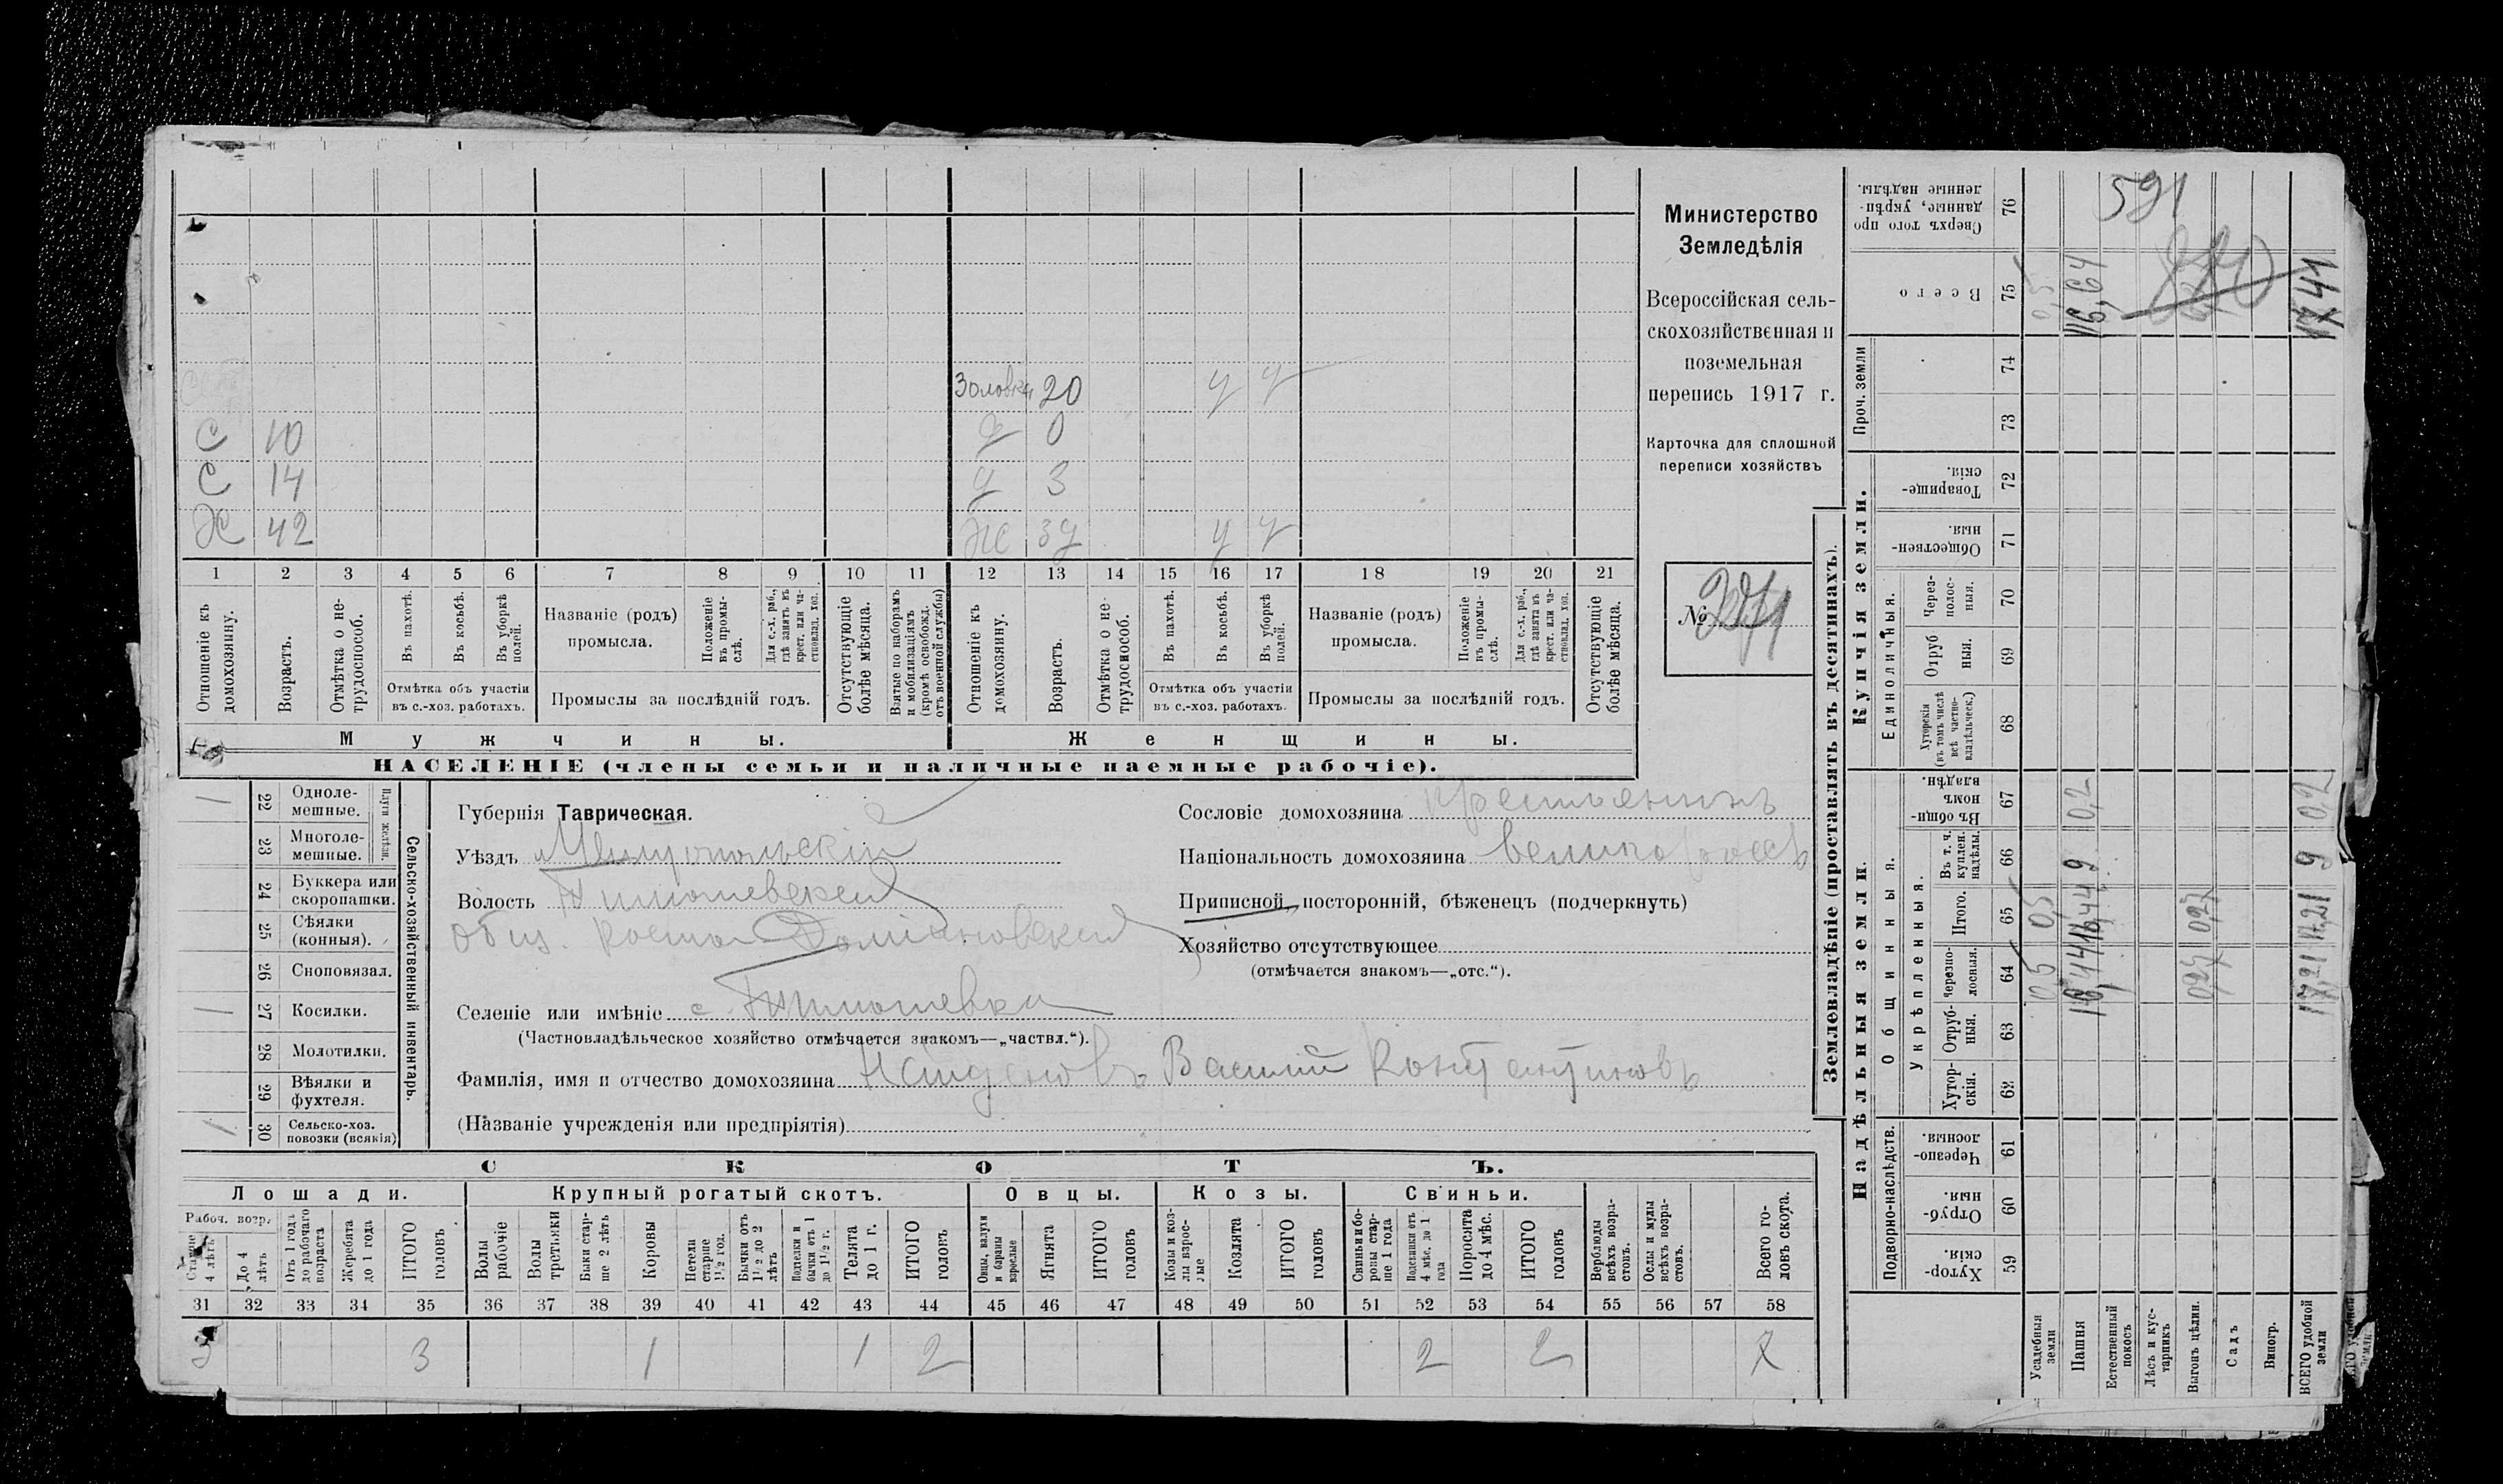 Золовка 20 у у
С 10 д 0
С 14 д 3
Х 42 Ж 39 у у
1 2 3 4 5 6 7 8 9 10 11 12 13 14 15 16 17 18 19 20 21
Отношеніе къ домохозяину.
Возрастъ.
Отмѣтка о не-
трудоспособ.
Въ пахотѣ.
Въ косьбѣ.
Въ уборкѣ
полей.
Отмѣтка объ участіи
въ с.-хоз. работахъ.
Названіе (родъ)
промысла.
Положеніе
въ промы-
слѣ.
Для с.-х. раб.,
гдѣ занятъ въ
крест. или ча-
стновлад. хоз.
Промыслы за послѣдній годъ.
Отсутствующіе
болѣе мѣсяца.
Взятые по наборамъ
и мобилизаціямъ
(кромѣ освобожд.
отъ военной службы)
Отношеніе къ
домохозяину.
Возрастъ.
Отмѣтка о не-
трудоспособ.
Въ пахотѣ.
Въ косьбѣ.
Въ уборкѣ
полей.
Отмѣтка объ участіи
въ с.-хоз. работахъ.
Названіе (родъ)
промысла.
Положеніе
въ промы-
слѣ.
Для с.-х. раб.,
гдѣ занята въ
крест. или ча-
стновлад. хоз.
Промыслы за послѣдній годъ.
Отсутствующіе
болѣе мѣсяца.
Мужчины.
Женщины.
НАСЕЛЕНІЕ (члены семьи и наличные наемные рабочіе).
Министерство
Земледѣлія
Всероссійская сель-
скохозяйственная и
поземельная
перепись 1917 г.
Карточка для сплошной
переписи хозяйствъ
№ 271
Сельско-хозяйственный инвентарь.
Плуги желѣзн.
1 22 Одноле-
мешные.
23 Многоле-
мешные.
24 Буккера или
скоропашки.
25 Сѣялки
(конныя).
26 Сноповязал.
1 27 Косилки.
28 Молотилки.
29 Вѣялки и
фухтеля.
1 30 Сельско-хоз.
повозки (всякія)
Губернія Таврическая.
Уѣздъ Мелитопольскій
Волость Тимошевская
общ.
Селеніе или имѣніе с. Тимошевка
(Частновладѣльческое хозяйство отмѣчается знакомъ—„частвл.“).
Фамилія, имя и отчество домохозяина Найденовъ Василій Константиновъ
(Названіе учрежденія или предпріятія)
Сословіе домохозяина крестьянинъ
Національность домохозяина великороссъ
Приписной, посторонній, бѣженецъ (подчеркнуть)
Хозяйство отсутствующее
(отмѣчается знакомъ—„отс.“).
СКОТЪ.
Лошади. Крупный рогатый скотъ. Овцы. Козы. Свиньи.
Рабоч. возр.
Старше
4 лѣтъ
До 4
лѣтъ
Отъ 1 года
до рабочаго
возраста
Жеребята
до 1 года
ИТОГО
головъ
Волы
рабочіе
Волы
третьяки
Быки стар-
ше 2 лѣтъ
Коровы
Нетели
старше
1½ год.
Бычки отъ
1½ до 2
лѣтъ
Телята
до 1 г.
ИТОГО
головъ
Овцы, валухи
и бараны
взрослые
Ягнята
ИТОГО
головъ
Козы и коз-
лы взрос-
лые
Козлята
ИТОГО
головъ
Свиньи и бо-
ровы стар-
ше 1 года
Подсвинки отъ
4 мѣс. до 1
года
Поросята
до 4 мѣс.
ИТОГО
головъ
Верблюды
всѣхъ возра-
стовъ.
Ослы и мулы
всѣхъ возра-
стовъ.
Всего го-
ловъ скота.
31 32 33 34 35 36 37 38 39 40 41 42 43 44 45 46 47 48 49 50 51 52 53 54 55 56 57 58
3 3 1 1 2 2 2 7
Землевладѣніе (проставлять въ десятинахъ).
Надѣльныя земли.
Купчія земли.
Проч. земли
Подворно-наслѣдств.
Общинныя.
Укрѣпленныя.
Единоличныя.
Хутор-
скія. 59
Отруб-
ныя. 60
Черезпо-
лосныя. 61
Хутор-
скія. 62
Отруб-
ныя. 63
Черезпо-
лосныя. 64
Итого. 65
Въ т. ч.
куплен.
надѣлы. 66
Въ общи-
номъ
владѣн. 67
Хуторскія
(въ томъ числѣ
всѣ частно-
владѣльческ.) 68
Отруб
ныя. 69
Через-
полос-
ныя. 70
Обществен-
ныя. 71
Товарище-
скія. 72
73
74
Всего 75
Сверхъ того про
данные, укрѣп-
ленные надѣлы. 76
591
270
Усадебныя
земли 0,5 0,5 0,5
Пашня 16,44 16,44 9 0,2 16,64
Естественный
покосъ
Лѣсъ и кус-
тарникъ
Выгонъ цѣлин. 0,27 0,27
Садъ
Виногр.
ВСЕГО удобной
земли 17,21 17,21 9 0,2 17,41